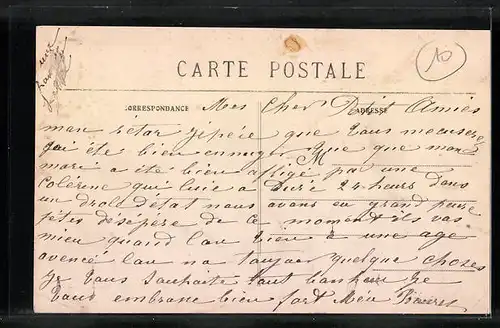 CARTE POSTALE
CORRESPONDANCE ADRESSE
Mes Cher Petit Amies
mon retar j'ipére que vous
j'ai été bien ennuyer que que mon
M
mari a été bien afligé par une
qui luie a Duré 24 heurs Dans
un droll detat nous avons eu grand
déséspére de ce moment ils vas
mieu quand l'on vien a une age
avencé l'on na toujour quelque choses
Je vous souhaite tout bonheur Je
vous embrane bien fort
10